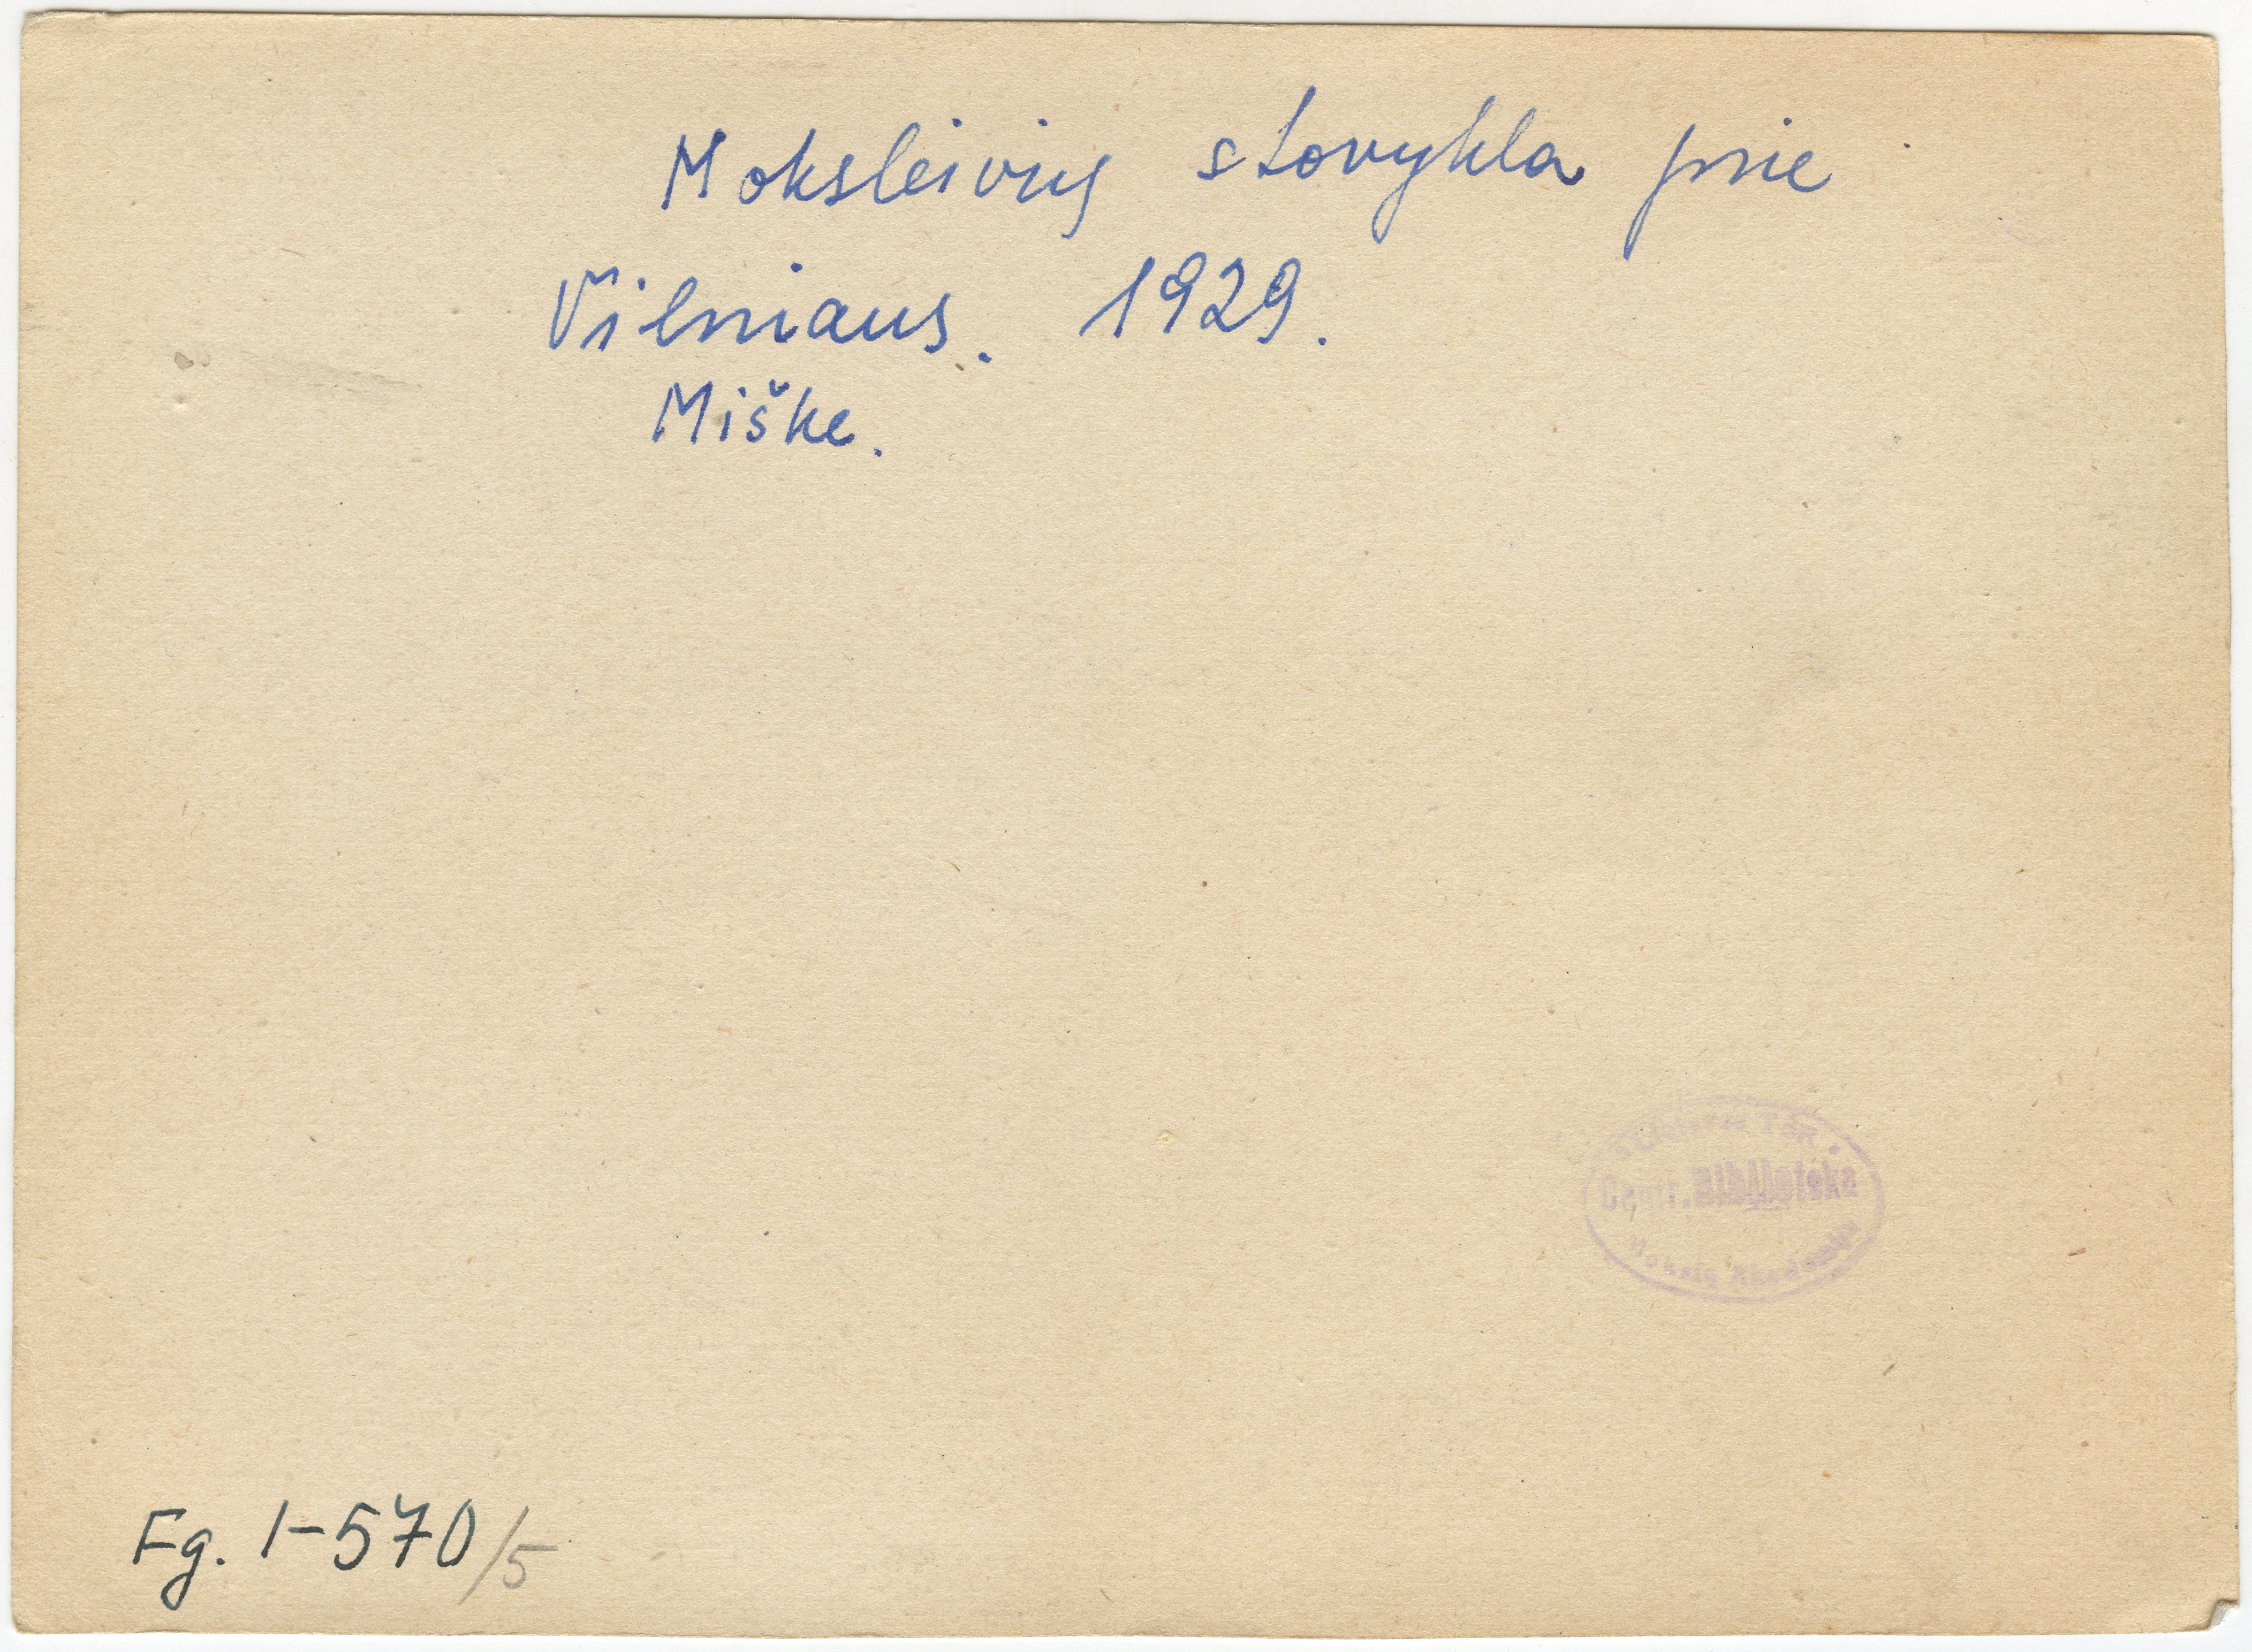 Moksleivių stovykla prie
Vilniaus. 1929.
Miške.
Lietuvos TSR
Centr. Biblioteka
Mokslų Akademija
Fg. 1-570/5